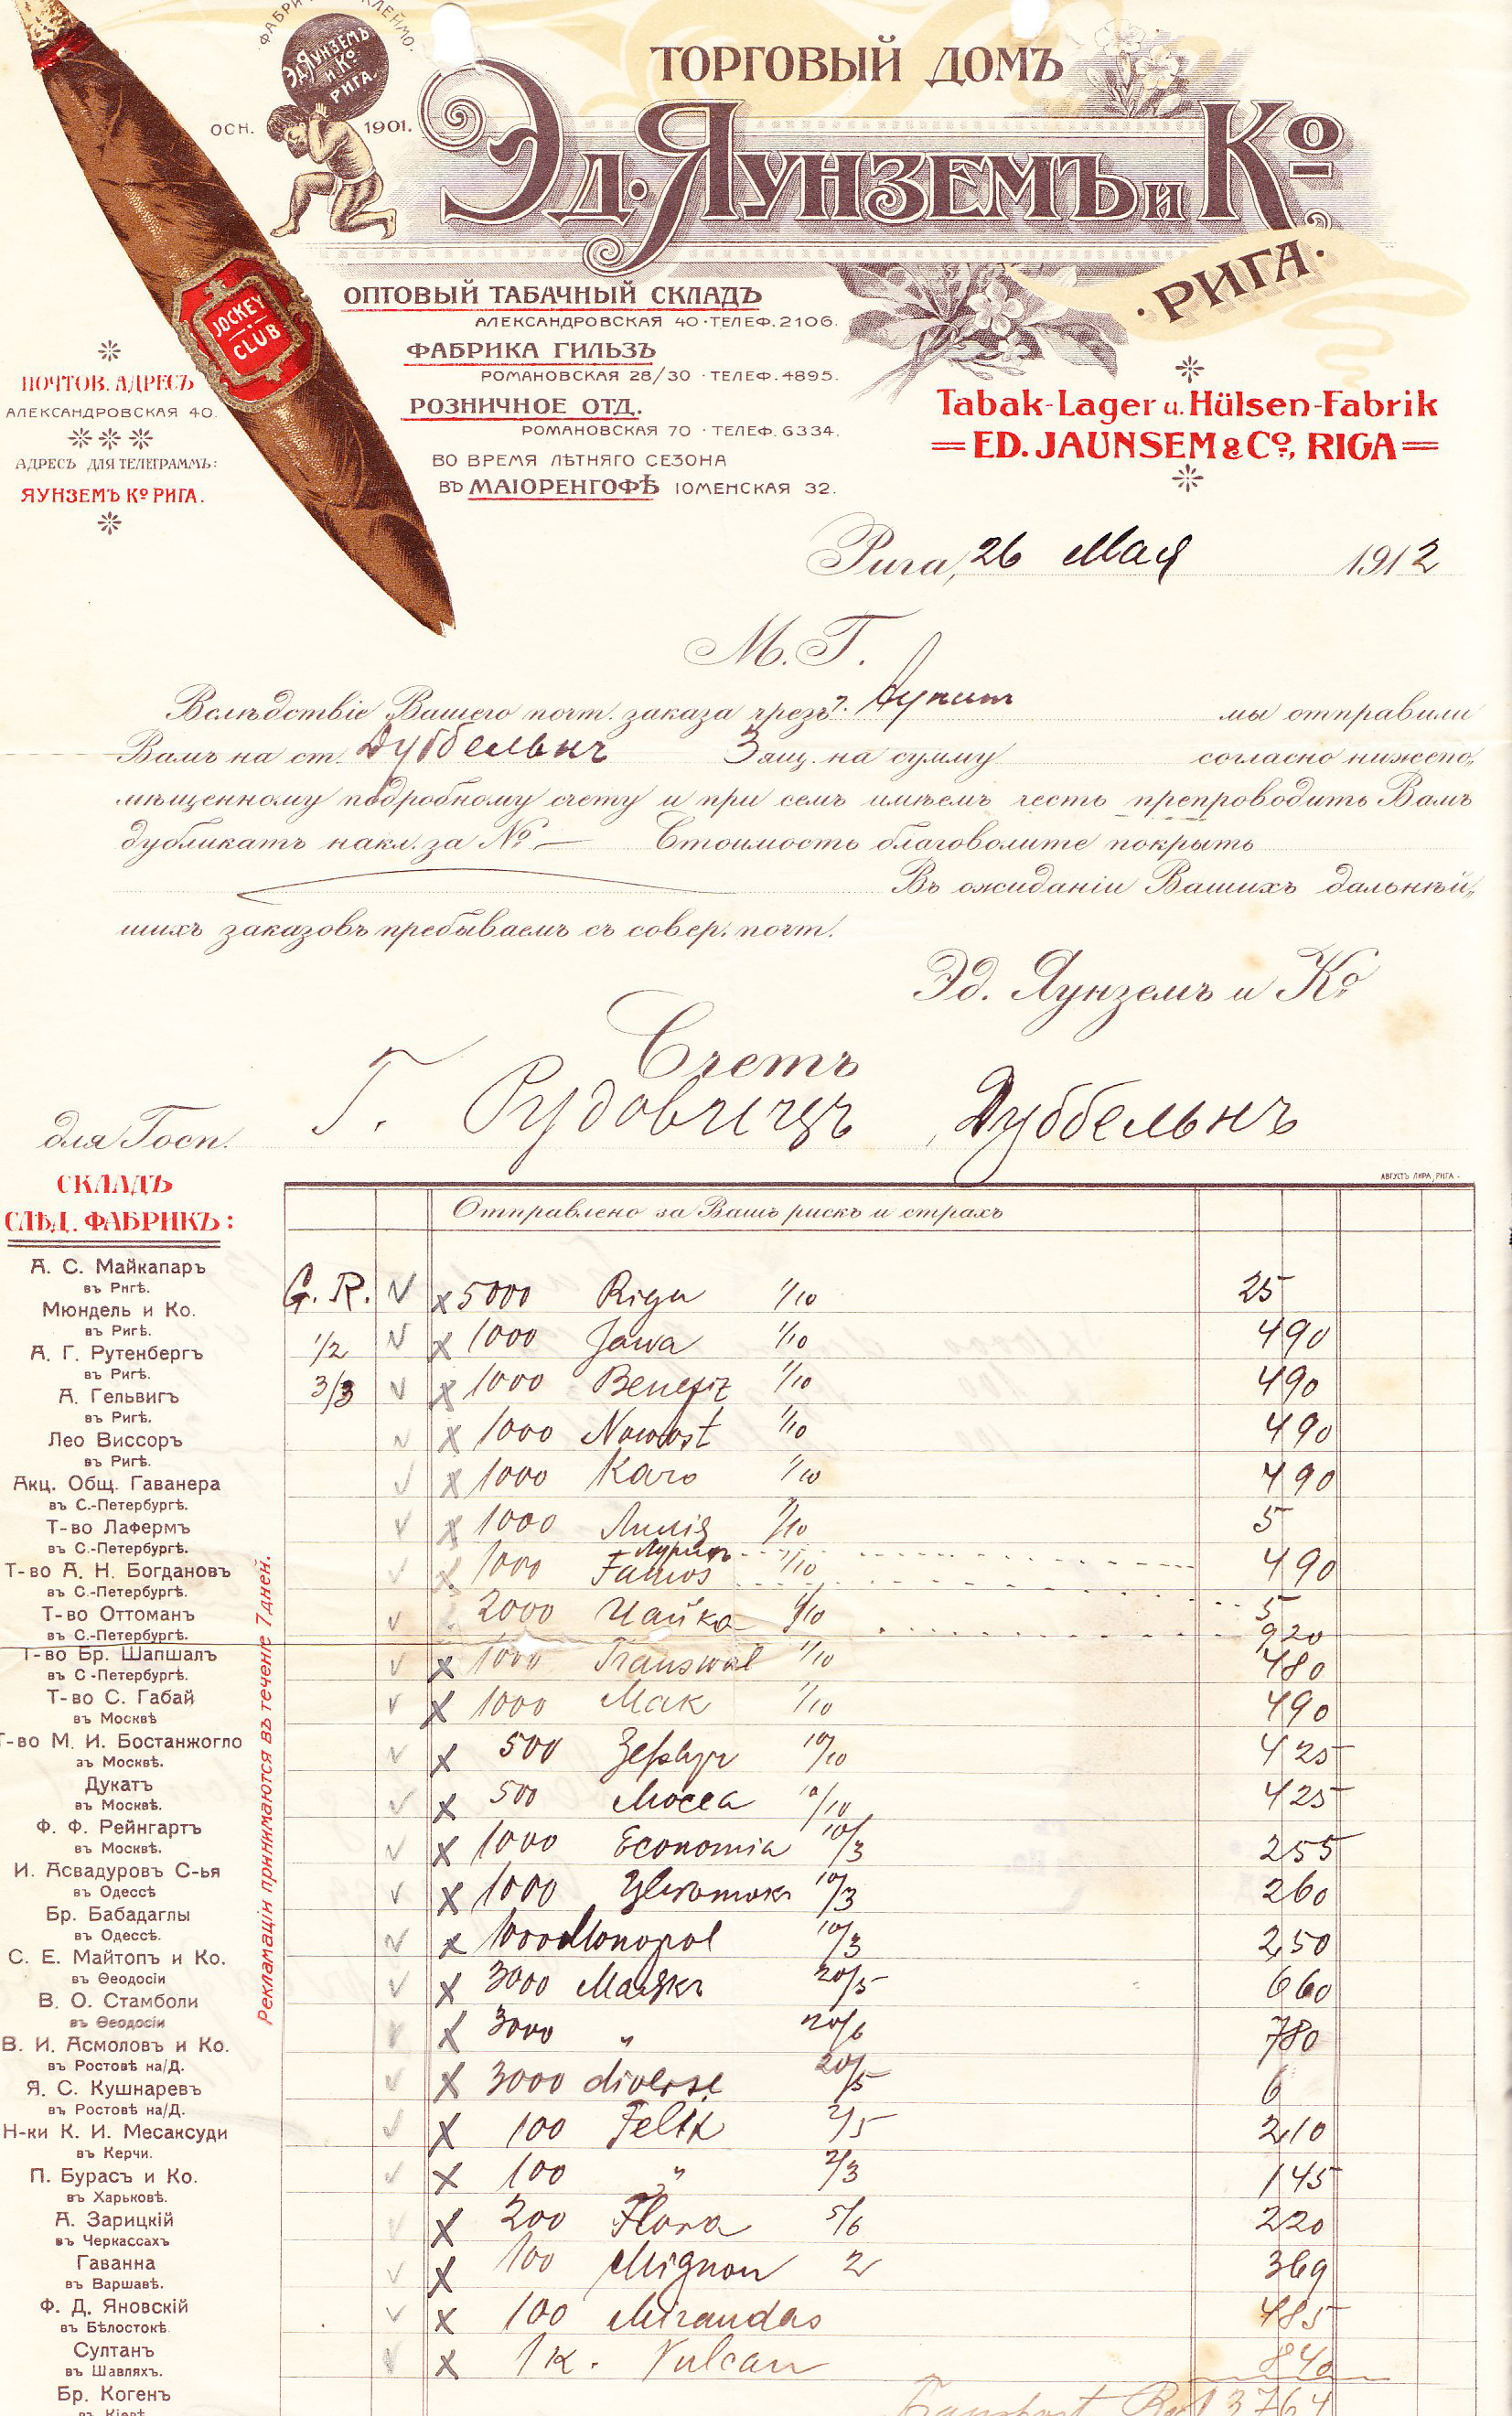 ФАБРИ КЛЕЙМО.
Эд. ЯУНЗЕМЪ
и Ко
РИГА.
ОСН. 1901.
ТОРГОВЫЙ ДОМЪ
Эд. ЯУНЗЕМЪ и Ко
• РИГА •
JOCKEY
CLUB
ОПТОВЫЙ ТАБАЧНЫЙ СКЛАДЪ
АЛЕКСАНДРОВСКАЯ 40 · ТЕЛЕФ. 2106.
ФАБРИКА ГИЛЬЗЪ
РОМАНОВСКАЯ 28/30 · ТЕЛЕФ. 4895.
РОЗНИЧНОЕ ОТД.
РОМАНОВСКАЯ 70 · ТЕЛЕФ. 6334.
ВО ВРЕМЯ ЛѢТНЯГО СЕЗОНА
ВЪ МАІОРЕНГОФѢ ІОМЕНСКАЯ 32.
ПОЧТОВ. АДРЕСЪ
АЛЕКСАНДРОВСКАЯ 40.
АДРЕСЪ ДЛЯ ТЕЛЕГРАММЪ:
ЯУНЗЕМЪ Ко РИГА.
Tabak-Lager u. Hülsen-Fabrik
ED. JAUNSEM & Co., RIGA
Рига, 26 Мая 1912
М. Г.
Вслѣдствіе Вашего почт. заказа чрезъ г. мы отправили
Вамъ на ст. Дуббельнъ 3 ящ. на сумму согласно нижепо-
мѣщенному подробному счету и при семъ имѣемъ честь препроводить Вамъ
дубликатъ накл. за № — Стоимость благоволите покрыть
Въ ожиданіи Вашихъ дальнѣй-
шихъ заказовъ пребываемъ съ совер. почт.
Эд. Яунземъ и Ко
Счетъ
для Госп. Г. Рудовичъ, Дуббельнъ
АВГУСТЪ ЛИРА, РИГА.
Отправлено за Вашъ рискъ и страхъ
G. R. x 5000 Riga 1/10 25
1/2 x 1000 Jawa 1/10 4 90
3/3 x 1000 Benefiz 1/10 4 90
x 1000 Nowost 1/10 4 90
x 1000 Karo 1/10 4 90
x 1000 Лилія 1/10 5
x 1000 Famos 1/10 4 90
2000 Чайка 1/10 5
9 20
x 1000 Transwal 1/10 4 80
x 1000 Мак 1/10 4 90
x 500 Зефир 10/10 4 25
x 500 Mocca 10/10 4 25
x 1000 Economia 10/3 2 55
x 1000 10/3 2 60
x 1000 Monopol 10/3 2 50
x 3000 Маякъ 20/5 6 60
x 3000 " 20/6 7 80
x 3000 diverse 20/5 6
x 100 Felix 2/5 2 10
x 100 " 2/3 1 45
x 200 Flora 5/6 2 20
x 100 Mignon 2 3 69
x 100 Mirandas 4 85
x 1 к. Vulcan 8 40
Transport
СКЛАДЪ
СЛѢД. ФАБРИКЪ:
А. С. Майкапаръ
въ Ригѣ.
Мюндель и Ко.
въ Ригѣ.
А. Г. Рутенбергъ
въ Ригѣ.
А. Гельвигъ
въ Ригѣ.
Лео Виссоръ
въ Ригѣ.
Акц. Общ. Гаванера
въ С.-Петербургѣ.
Т-во Лафермъ
въ С.-Петербургѣ.
Т-во А. Н. Богдановъ
въ С.-Петербургѣ.
Т-во Оттоманъ
въ С.-Петербургѣ.
Т-во Бр. Шапшалъ
въ С-Петербургѣ.
Т-во С. Габай
въ Москвѣ
Т-во М. И. Бостанжогло
въ Москвѣ.
Дукатъ
въ Москвѣ.
Ф. Ф. Рейнгартъ
въ Москвѣ.
И. Асвадуровъ С-ья
въ Одессѣ
Бр. Бабадаглы
въ Одессѣ.
С. Е. Майтопъ и Ко.
въ Ѳеодосіи
В. О. Стамболи
въ Ѳеодосіи
В. И. Асмоловъ и Ко.
въ Ростовѣ на/Д.
Я. С. Кушнаревъ
въ Ростовѣ на/Д.
Н-ки К. И. Месаксуди
въ Керчи.
П. Бурасъ и Ко.
въ Харьковѣ.
А. Зарицкій
въ Черкассахъ
Гаванна
въ Варшавѣ.
Ф. Д. Яновскій
въ Бѣлостокѣ.
Султанъ
въ Шавляхъ.
Бр. Когенъ
въ Кіевѣ
Рекламаціи принимаются въ течене 7 дней.